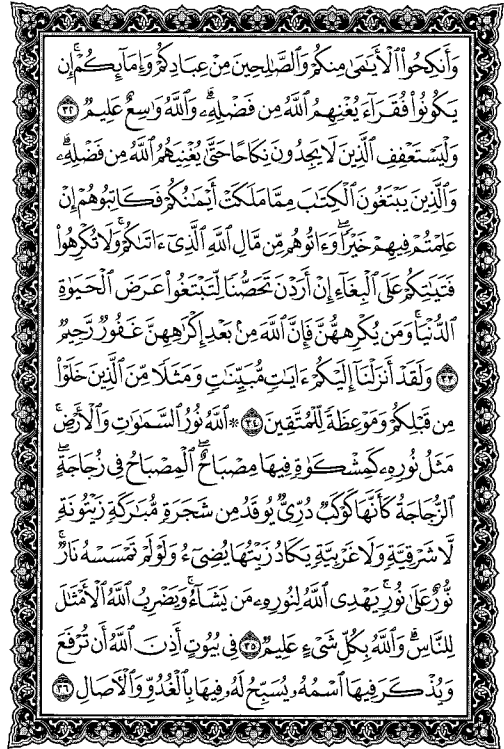 وَأَنكِحُوا۟ ٱلْأَيَـٰمَىٰ مِنكُمْ وَٱلصَّـٰلِحِينَ مِنْ عِبَادِكُمْ وَإِمَآئِكُمْ ۚ إِن
يَكُونُوا۟ فُقَرَآءَ يُغْنِهِمُ ٱللَّهُ مِن فَضْلِهِۦ ۗ وَٱللَّهُ وَٰسِعٌ عَلِيمٌ ٣٢
وَلْيَسْتَعْفِفِ ٱلَّذِينَ لَا يَجِدُونَ نِكَاحًا حَتَّىٰ يُغْنِيَهُمُ ٱللَّهُ مِن فَضْلِهِۦ ۗ
وَٱلَّذِينَ يَبْتَغُونَ ٱلْكِتَـٰبَ مِمَّا مَلَكَتْ أَيْمَـٰنُكُمْ فَكَاتِبُوهُمْ إِنْ
عَلِمْتُمْ فِيهِمْ خَيْرًا ۖ وَءَاتُوهُم مِّن مَّالِ ٱللَّهِ ٱلَّذِىٓ ءَاتَىٰكُمْ ۚ وَلَا تُكْرِهُوا۟
فَتَيَـٰتِكُمْ عَلَى ٱلْبِغَآءِ إِنْ أَرَدْنَ تَحَصُّنًا لِّتَبْتَغُوا۟ عَرَضَ ٱلْحَيَوٰةِ
ٱلدُّنْيَا ۚ وَمَن يُكْرِههُّنَّ فَإِنَّ ٱللَّهَ مِنۢ بَعْدِ إِكْرَٰهِهِنَّ غَفُورٌ رَّحِيمٌ
٣٣ وَلَقَدْ أَنزَلْنَآ إِلَيْكُمْ ءَايَـٰتٍ مُّبَيِّنَـٰتٍ وَمَثَلًا مِّنَ ٱلَّذِينَ خَلَوْا۟
مِن قَبْلِكُمْ وَمَوْعِظَةً لِّلْمُتَّقِينَ ٣٤ * ٱللَّهُ نُورُ ٱلسَّمَـٰوَٰتِ وَٱلْأَرْضِ ۚ
مَثَلُ نُورِهِۦ كَمِشْكَوٰةٍ فِيهَا مِصْبَاحٌ ۖ ٱلْمِصْبَاحُ فِى زُجَاجَةٍ ۖ
ٱلزُّجَاجَةُ كَأَنَّهَا كَوْكَبٌ دُرِّىٌّ يُوقَدُ مِن شَجَرَةٍ مُّبَـٰرَكَةٍ زَيْتُونَةٍ
لَّا شَرْقِيَّةٍ وَلَا غَرْبِيَّةٍ يَكَادُ زَيْتُهَا يُضِىٓءُ وَلَوْ لَمْ تَمْسَسْهُ نَارٌ ۚ
نُّورٌ عَلَىٰ نُورٍ ۗ يَهْدِى ٱللَّهُ لِنُورِهِۦ مَن يَشَآءُ ۚ وَيَضْرِبُ ٱللَّهُ ٱلْأَمْثَـٰلَ
لِلنَّاسِ ۗ وَٱللَّهُ بِكُلِّ شَىْءٍ عَلِيمٌ ٣٥ فِى بُيُوتٍ أَذِنَ ٱللَّهُ أَن تُرْفَعَ
وَيُذْكَرَ فِيهَا ٱسْمُهُۥ يُسَبِّحُ لَهُۥ فِيهَا بِٱلْغُدُوِّ وَٱلْـَٔاصَالِ ٣٦